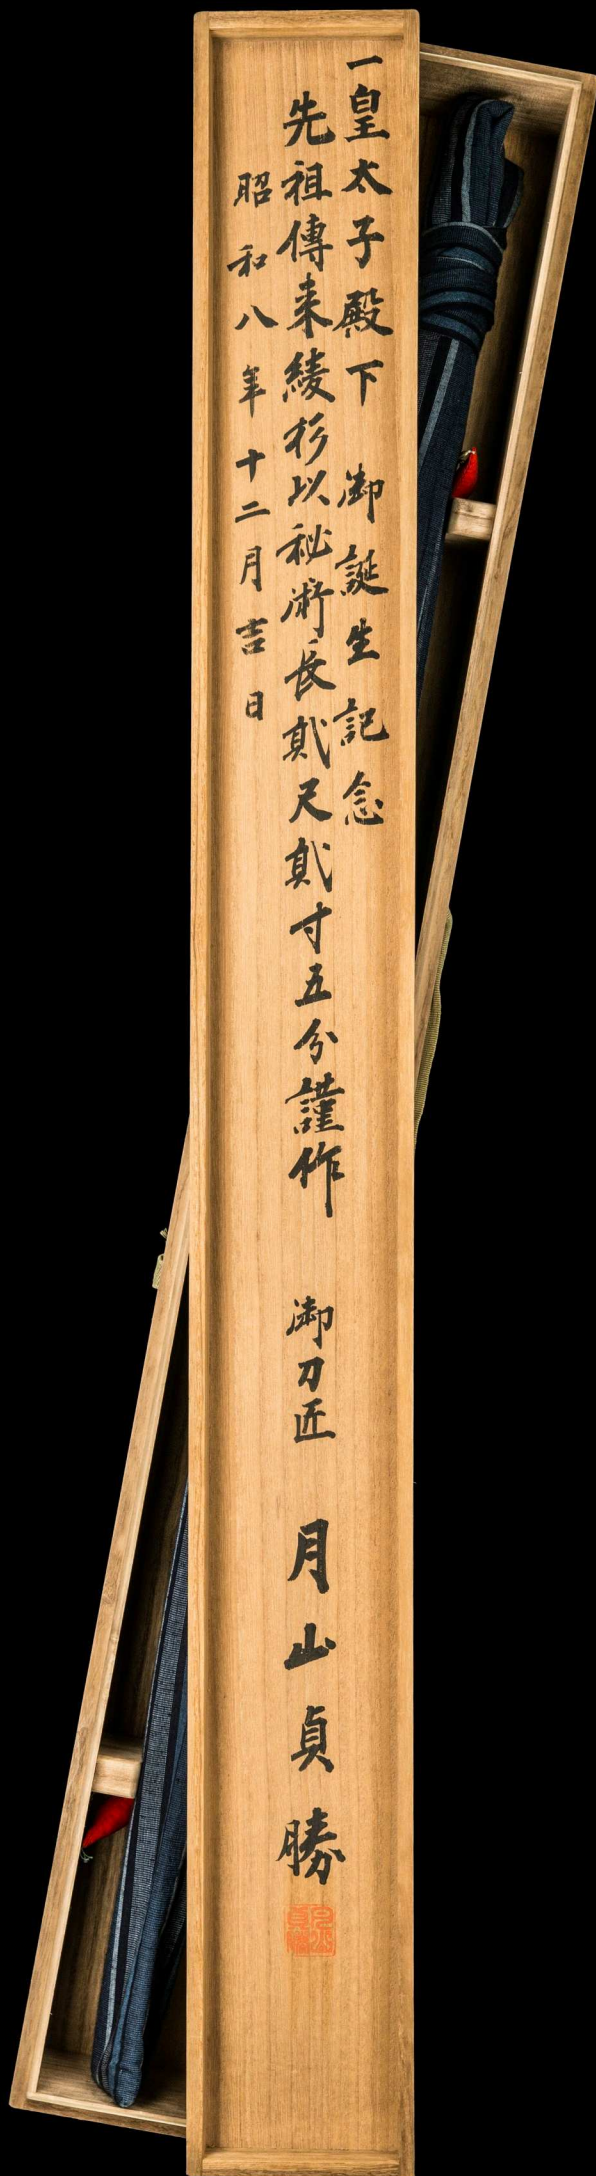 一皇太子殿下 御誕生記念
先祖傳来綾杉以秘術長貮尺貮寸五分謹作 御刀匠 月山貞勝
昭和八年十二月吉日
月山貞勝